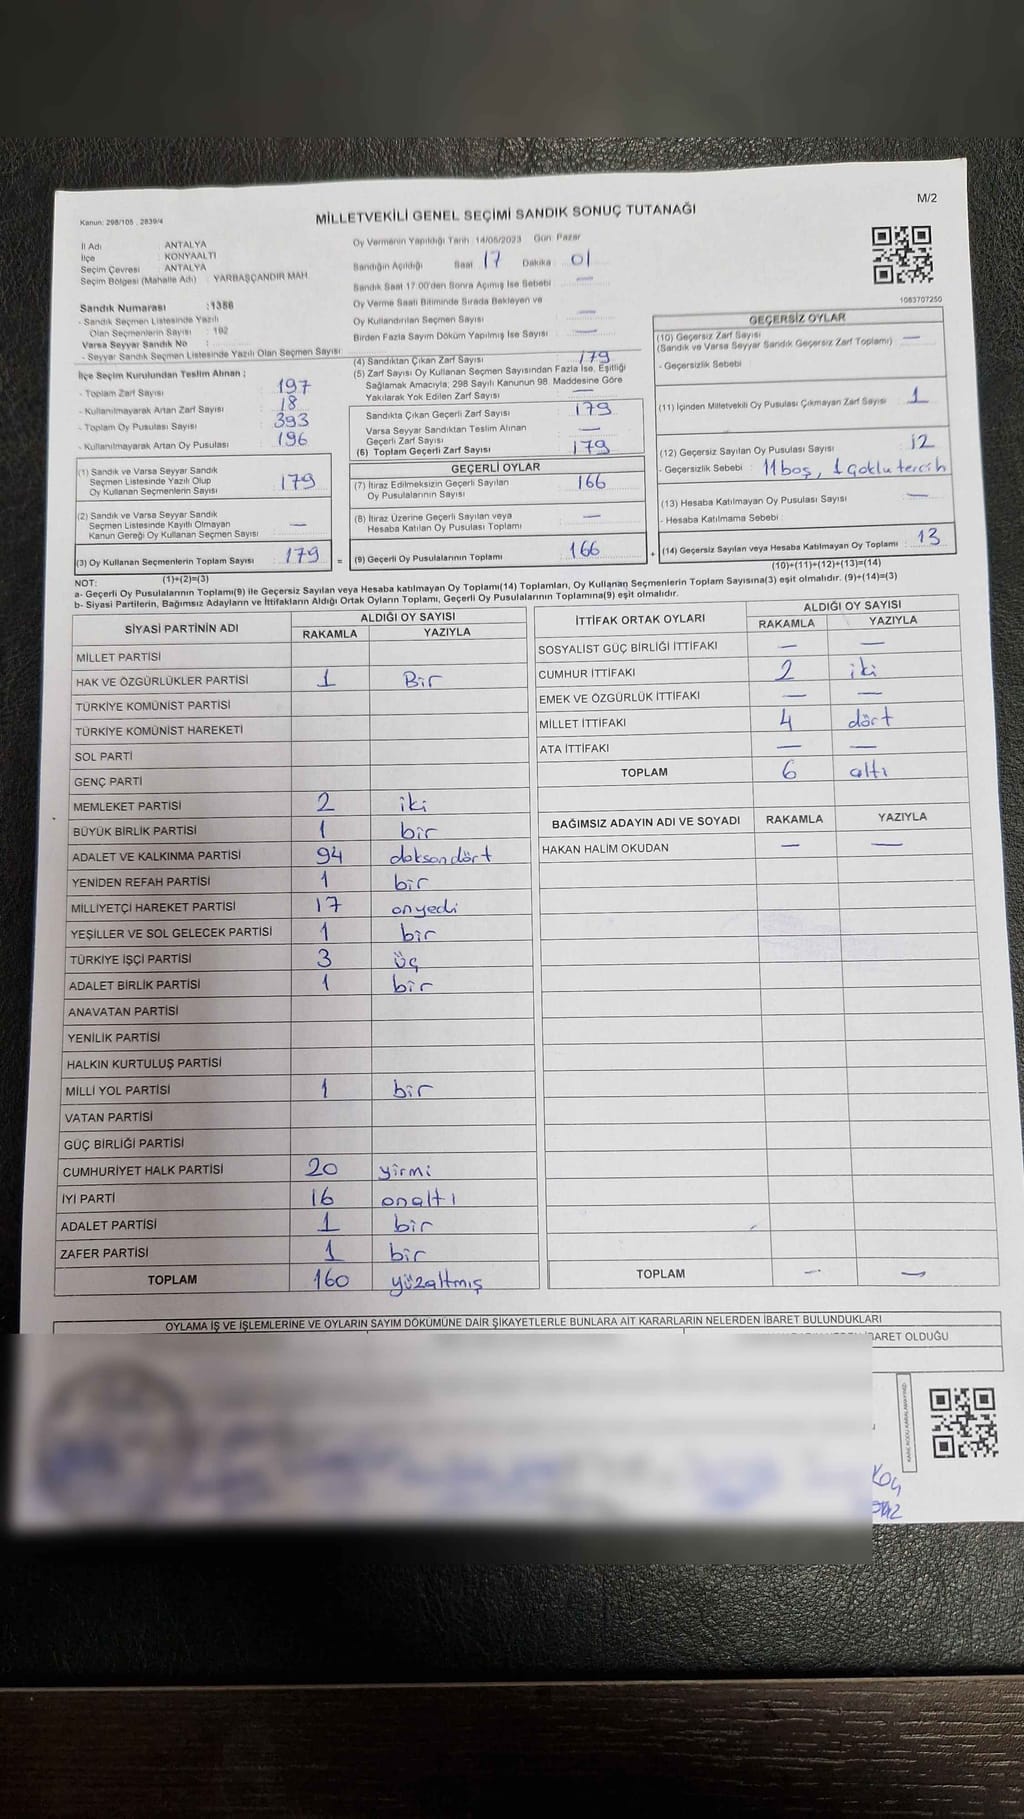 M/2
Kanun: 298/105 , 2839/4
MİLLETVEKİLİ GENEL SEÇİMİ SANDIK SONUÇ TUTANAĞI
İl Adı ANTALYA
İlçe KONYAALTI
Seçim Çevresi ANTALYA
Seçim Bölgesi (Mahalle Adı) : YARBAŞÇANDIR MAH
Sandık Numarası :1386
- Sandık Seçmen Listesinde Yazılı
Olan Seçmenlerin Sayısı : 192
Varsa Seyyar Sandık No :
- Seyyar Sandık Seçmen Listesinde Yazılı Olan Seçmen Sayısı
İlçe Seçim Kurulundan Teslim Alınan ;
- Toplam Zarf Sayısı 197
- Kullanılmayarak Artan Zarf Sayısı 18
- Toplam Oy Pusulası Sayısı 393
- Kullanılmayarak Artan Oy Pusulası 196
(1) Sandık ve Varsa Seyyar Sandık
Seçmen Listesinde Yazılı Olup
Oy Kullanan Seçmenlerin Sayısı 179
(2) Sandık ve Varsa Seyyar Sandık
Seçmen Listesinde Kayıtlı Olmayan
Kanun Gereği Oy Kullanan Seçmen Sayısı : —
(3) Oy Kullanan Seçmenlerin Toplam Sayısı : 179 =
(1)+(2)=(3)
Oy Vermenin Yapıldığı Tarih : 14/05/2023 Gün Pazar
Sandığın Açıldığı Saat 17 Dakika 01
Sandık Saat 17.00'den Sonra Açımış İse Sebebi —
Oy Verme Saati Bitiminde Sırada Bekleyen ve
Oy Kullandırılan Seçmen Sayısı —
Birden Fazla Sayım Döküm Yapılmış İse Sayısı —
(4) Sandıktan Çıkan Zarf Sayısı 179
(5) Zarf Sayısı Oy Kullanan Seçmen Sayısından Fazla İse, Eşitliği
Sağlamak Amacıyla; 298 Sayılı Kanunun 98. Maddesine Göre
Yakılarak Yok Edilen Zarf Sayısı —
Sandıkta Çıkan Geçerli Zarf Sayısı 179
Varsa Seyyar Sandıktan Teslim Alınan
Geçerli Zarf Sayısı —
(6) Toplam Geçerli Zarf Sayısı 179
GEÇERLİ OYLAR
(7) İtiraz Edilmeksizin Geçerli Sayılan
Oy Pusulalarının Sayısı 166
(8) İtiraz Üzerine Geçerli Sayılan veya
Hesaba Katılan Oy Pusulası Toplamı —
(9) Geçerli Oy Pusulalarının Toplamı 166 +
1083707250
GEÇERSİZ OYLAR
(10) Geçersiz Zarf Sayısı
(Sandık ve Varsa Seyyar Sandık Geçersiz Zarf Toplamı) —
- Geçersizlik Sebebi
(11) İçinden Milletvekili Oy Pusulası Çıkmayan Zarf Sayısı 1
(12) Geçersiz Sayılan Oy Pusulası Sayısı 12
- Geçersizlik Sebebi : 11 boş, 1 çoklu tercih
(13) Hesaba Katılmayan Oy Pusulası Sayısı —
- Hesaba Katılmama Sebebi :
(14) Geçersiz Sayılan veya Hesaba Katılmayan Oy Toplamı : 13
(10)+(11)+(12)+(13)=(14)
NOT:
a- Geçerli Oy Pusulalarının Toplamı(9) ile Geçersiz Sayılan veya Hesaba katılmayan Oy Toplamı(14) Toplamları, Oy Kullanan Seçmenlerin Toplam Sayısına(3) eşit olmalıdır. (9)+(14)=(3)
b- Siyasi Partilerin, Bağımsız Adayların ve İttifakların Aldığı Ortak Oyların Toplamı, Geçerli Oy Pusulalarının Toplamına(9) eşit olmalıdır.
SİYASİ PARTİNİN ADI ALDIĞI OY SAYISI
RAKAMLA YAZIYLA
MİLLET PARTİSİ
HAK VE ÖZGÜRLÜKLER PARTİSİ 1 Bir
TÜRKİYE KOMÜNİST PARTİSİ
TÜRKİYE KOMÜNİST HAREKETİ
SOL PARTİ
GENÇ PARTİ
MEMLEKET PARTİSİ 2 iki
BÜYÜK BİRLİK PARTİSİ 1 bir
ADALET VE KALKINMA PARTİSİ 94 doksandört
YENİDEN REFAH PARTİSİ 1 bir
MİLLİYETÇİ HAREKET PARTİSİ 17 onyedi
YEŞİLLER VE SOL GELECEK PARTİSİ 1 bir
TÜRKİYE İŞÇİ PARTİSİ 3 üç
ADALET BİRLİK PARTİSİ 1 bir
ANAVATAN PARTİSİ
YENİLİK PARTİSİ
HALKIN KURTULUŞ PARTİSİ
MİLLİ YOL PARTİSİ 1 bir
VATAN PARTİSİ
GÜÇ BİRLİĞİ PARTİSİ
CUMHURİYET HALK PARTİSİ 20 yirmi
İYİ PARTİ 16 onaltı
ADALET PARTİSİ 1 bir
ZAFER PARTİSİ 1 bir
TOPLAM 160 yüzaltmış
İTTİFAK ORTAK OYLARI ALDIĞI OY SAYISI
RAKAMLA YAZIYLA
SOSYALİST GÜÇ BİRLİĞİ İTTİFAKI — —
CUMHUR İTTİFAKI 2 iki
EMEK VE ÖZGÜRLÜK İTTİFAKI — —
MİLLET İTTİFAKI 4 dört
ATA İTTİFAKI — —
TOPLAM 6 altı
BAĞIMSIZ ADAYIN ADI VE SOYADI RAKAMLA YAZIYLA
HAKAN HALİM OKUDAN — —
TOPLAM — —
OYLAMA İŞ VE İŞLEMLERİNE VE OYLARIN SAYIM DÖKÜMÜNE DAİR ŞİKAYETLERLE BUNLARA AİT KARARLARIN NELERDEN İBARET BULUNDUKLARI
BARET OLDUĞU